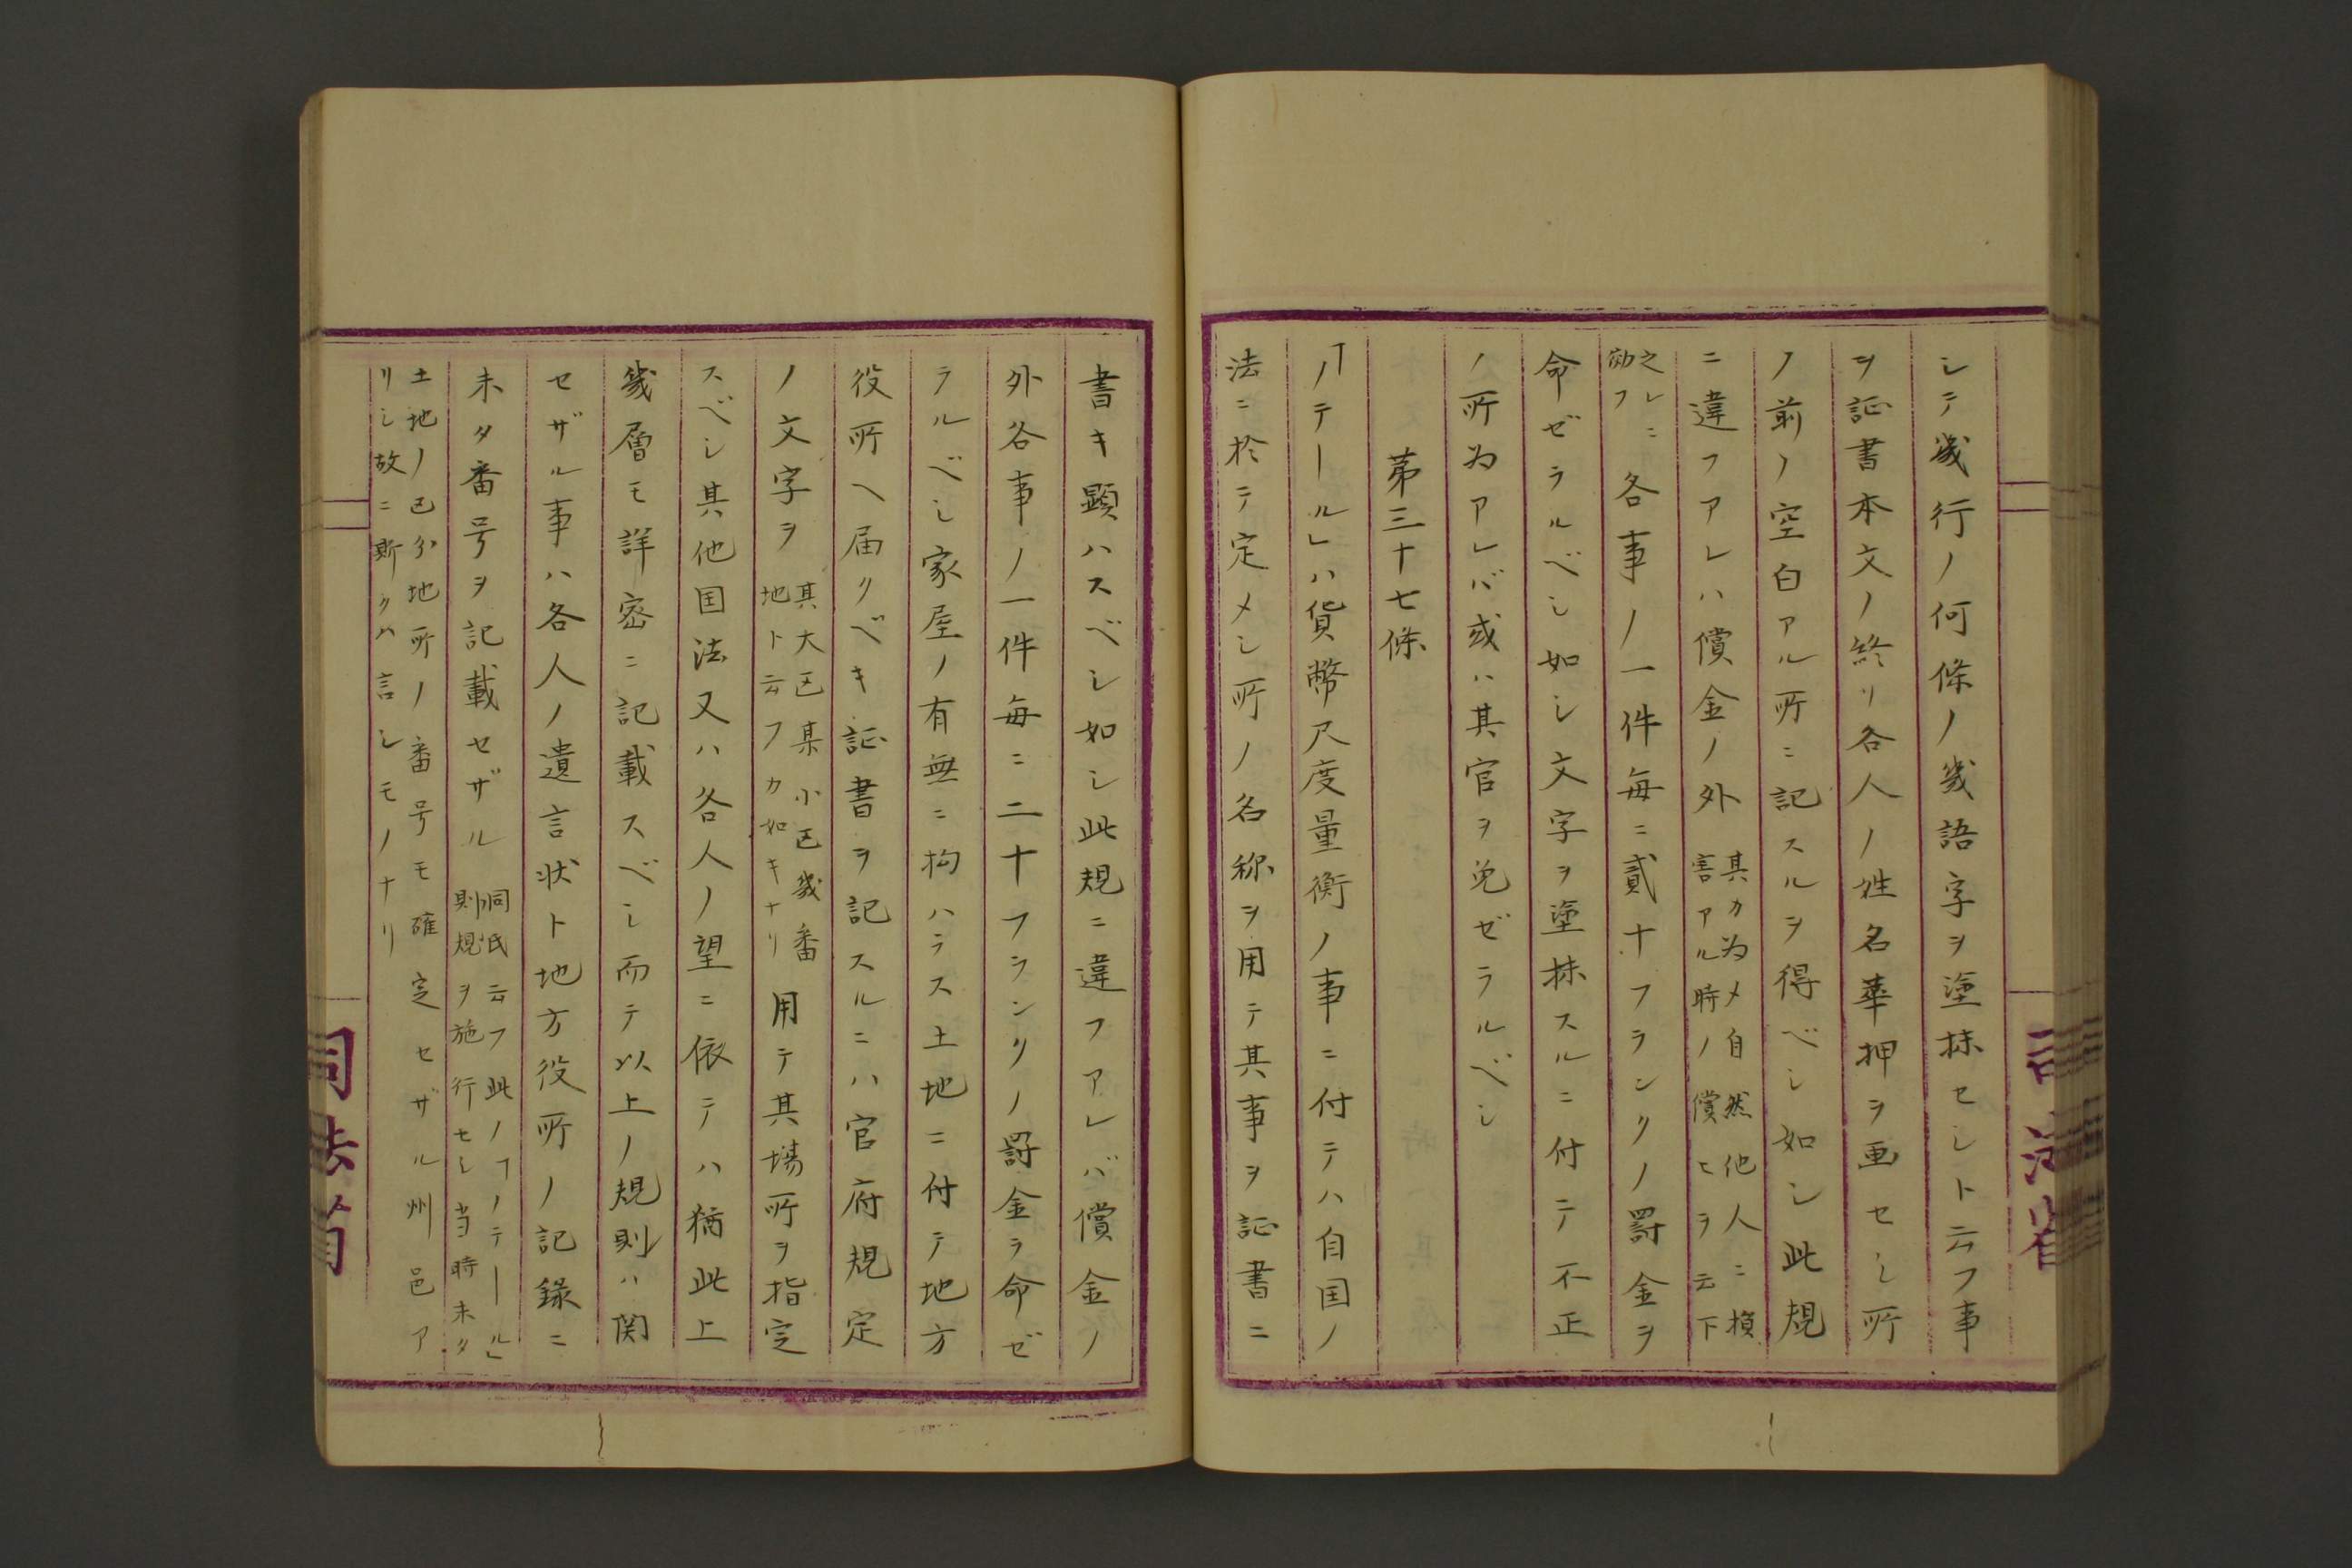 シテ幾行ノ何條ノ幾語字ヲ塗抹セシト云フ事
ヲ証書本文ノ終リ各人ノ姓名華押ヲ画セシ所
ノ前ノ空白アル所ニ記スルヲ得ベシ如シ此規
ニ違フアレハ償金ノ外
其カ為メ自然他人ニ損
害アル時ノ償ヒヲ云下
之レニ
効フ
各事ノ一件毎ニ貳十フランクノ罰金ヲ
命ゼラルベシ如シ文字ヲ塗抹スルニ付テ不正
ノ所為アレバ或ハ其官ヲ免ゼラルベシ
第三十七條
「ノテール」ハ貨幣尺度量衡ノ事ニ付テハ自国ノ
法ニ於テ定メシ所ノ名称ヲ用テ其事ヲ証書ニ
司法省
書キ顕ハスベシ如シ此規ニ違フアレバ償金ノ
外各事ノ一件毎ニ二十フランクノ罸金ラ命ゼ
ラルベシ家屋ノ有無ニ拘ハラス土地ニ付テ地方
役所ヘ届クベキ証書ヲ記スルニハ官府規定
ノ文字ヲ
其大区某小区幾番
地ト云フカ如キナリ
用テ其場所ヲ指定
スベシ其他国法又ハ各人ノ望ニ依テハ猶此上
幾層モ詳密ニ記載スベシ而テ以上ノ規則ハ関
セザル事ハ各人ノ遺言状ト地方役所ノ記録ニ
未タ番号ヲ記載セザル
洞氏云フ此ノ「ノテール」
則規ヲ施行セシ当時未タ
土地ノ区分地所ノ番号モ確定セザル州邑ア
リシ故ニ斯クハ言シモノナリ
司法省